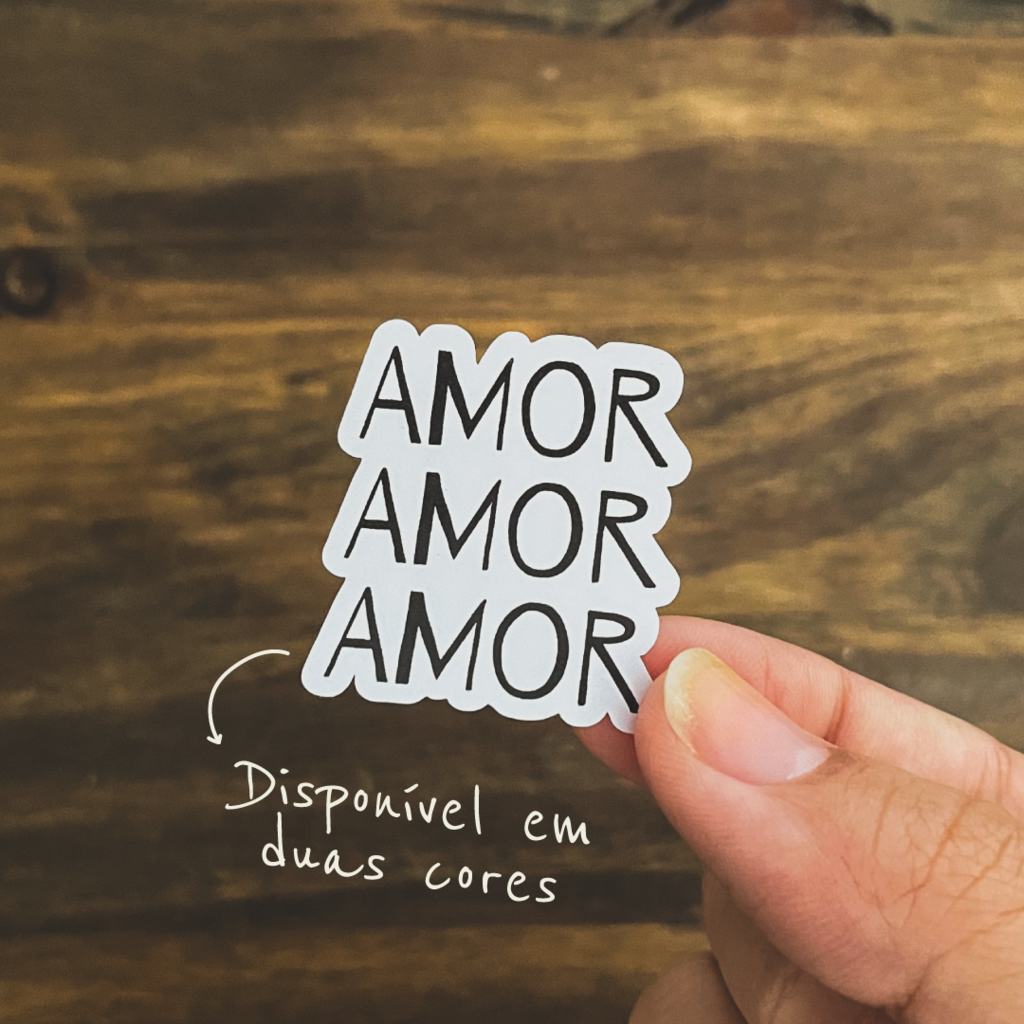 AMOR
AMOR
AMOR
Disponível em
duas cores